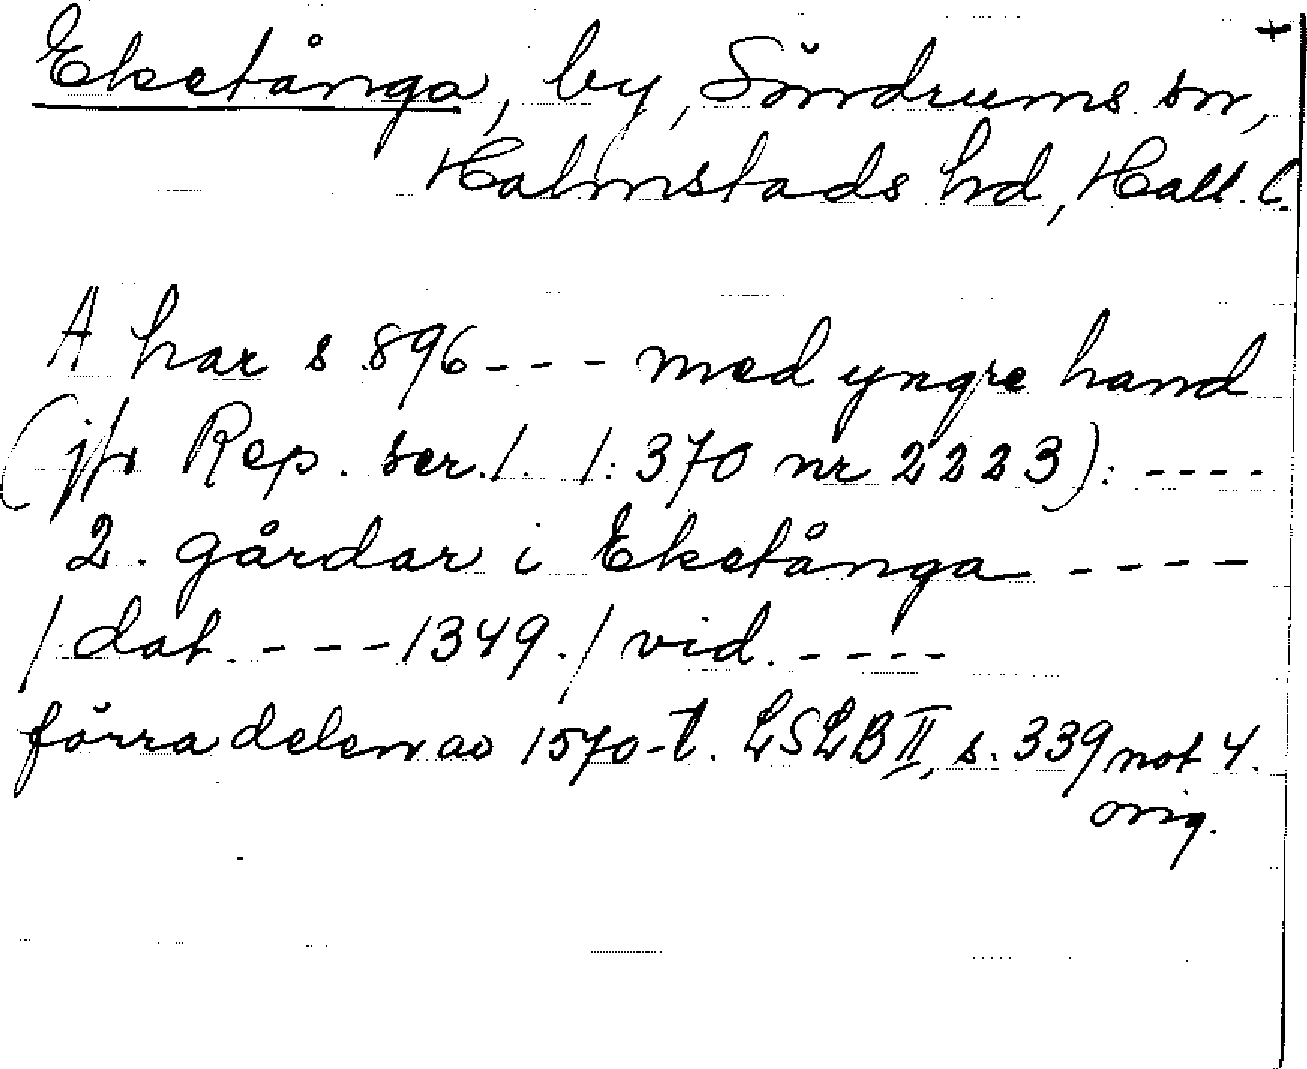 +
Eketånga, by, Söndrums sn,
Halmstads hd, Hall. l.
A har s 896 - - - med yngre hand
(jfr Rep. ser. 1. 1: 370 nr 2223): - - - -
2. gårdar i Eketånga - - - -
/ dat. - - - 1349. / vid. - - - -
förra delen av 1570-t. LSLB II, s. 339 not 4.
orig.